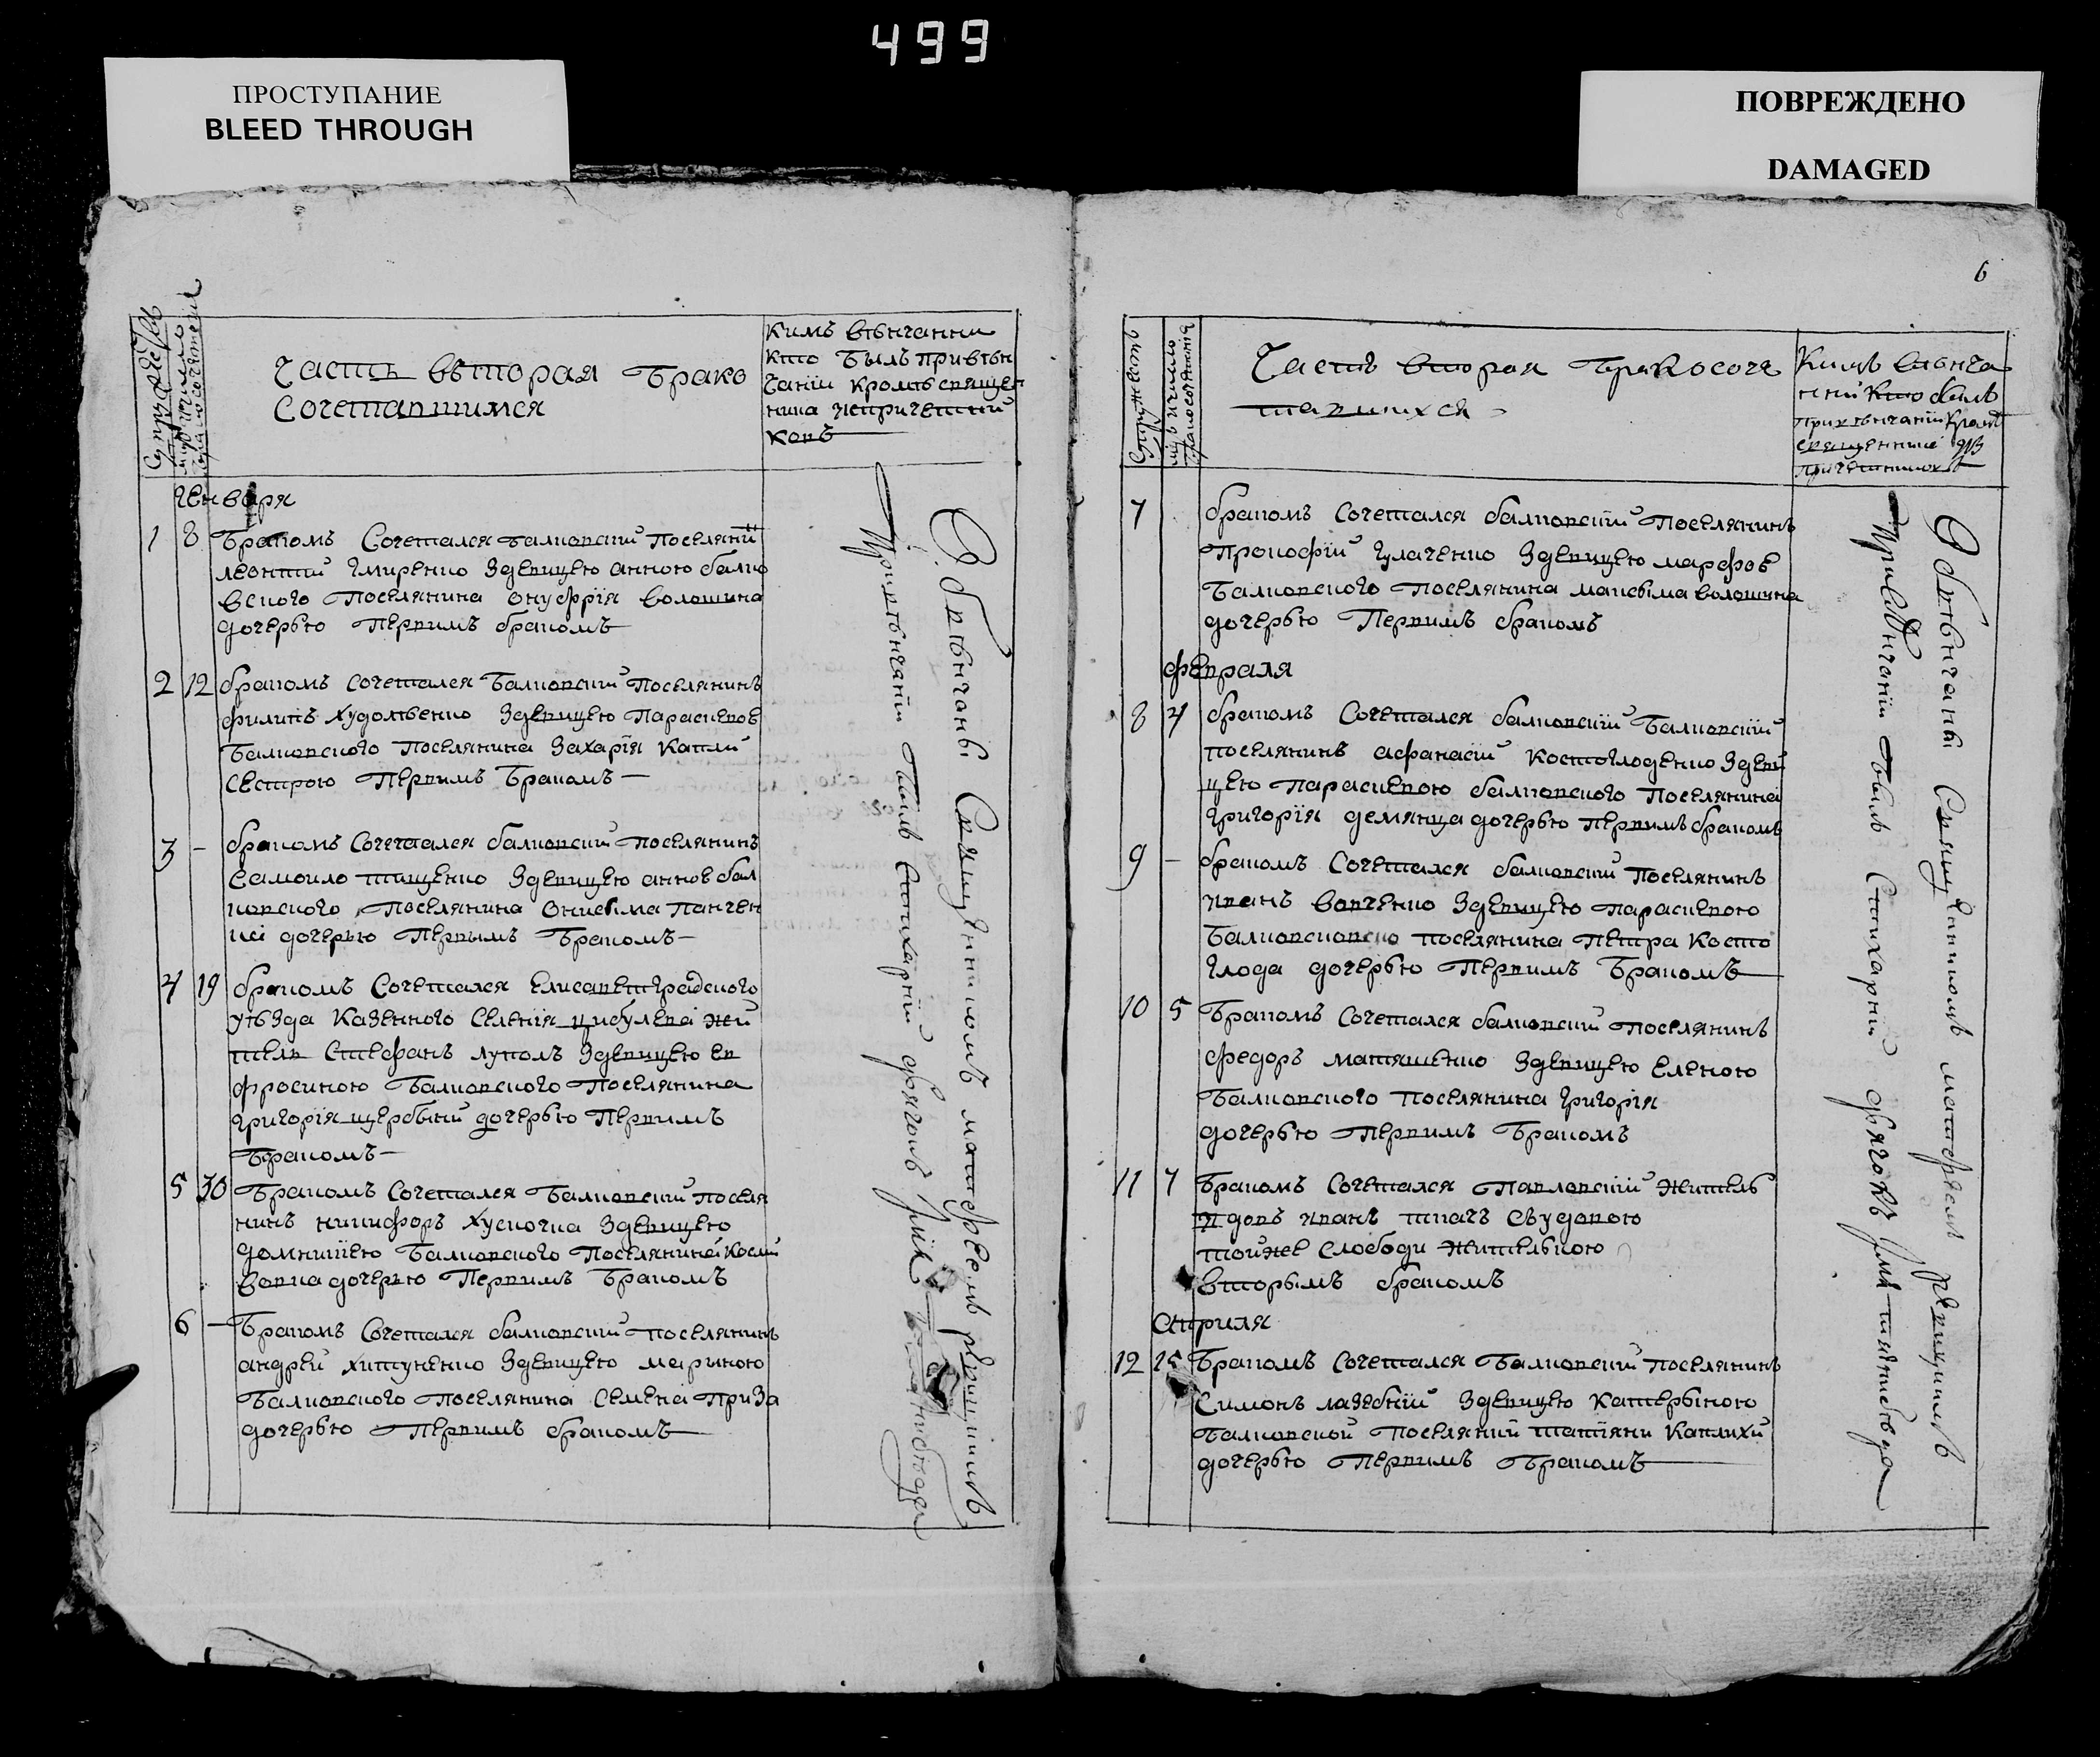 499
ПРОСТУПАНИЕ
BLEED THROUGH
ПОВРЕЖДЕНО
DAMAGED
6
Часть вѣторая Брако
Сочетавшимся
Кимъ вѣнчанни
кто Былъ привѣн
чаніи кромѣ священ
ника ипричетни
ковъ
Генваря
1 8 Бракомъ Сочетался балковскій Поселяни
леонтій Гмиренко Здевицею анною балко
вского Поселянина Онуфрія волошина
дочерью Первимъ бракомъ
2 12 бракомъ сочетался Балковскій Поселянинъ
филипъ худолѣенко Здевицею Параскевое
Балковского Поселянина Захарія Капли
сестрою Первимъ Бракомъ
3 - бракомъ Сочетался балковскій поселянинъ
Самоило тищенко Здевицею анное бал
ковского Поселянина Онисима Панчен
ка дочерью Первымъ Бракомъ
4 19 бракомъ Сочетался Елисаветградского
уѣзда Казенного Селенія цибулева жи
тель Стефанъ луполъ Здевицею Ев
фросиною Балковского Поселянина
Григорія щербины дочерью Первимъ
Бракомъ
5 30 Бракомъ Сочетался Балковскій Поселя
нинъ никифоръ Хускочка Здевицею
домникіею Балковского Поселянина
вовка дочерью Первимъ Бракомъ
6 - Бракомъ Сочетался балковскій поселянинъ
андрей хитуненко Здевицею мариною
Балковского поселянина Семена Приза
дочерью Первимъ бракомъ
Обвѣнчаны Священникомъ матфеемъ
Привѣнчаніи былъ Стихарній дячокъ
Часть вторая Бракосоче
тавшихся
Кимъ вѣнча
ний кто былъ
привѣнчаніи Кромѣ
священника
причетниковъ
7 бракомъ Сочетался балковскій Поселянинъ
Прокофій Гулаченко Здевицею марфое
Балковского Поселянина максыма волошина
дочерью Первимъ бракомъ
февраля
8 4 бракомъ Сочетался балковскій Балковскій
поселянинъ афанасій Костоглоденко Здеви
цею параскевою балковского Поселянина
Григорія демянца дочерью первимъ бракомъ
9 - бракомъ Сочетался балковскій Поселянинъ
иванъ вовченко Здевицею параскевою
поселянина Петра Косто
глода дочерью Первимъ Бракомъ
10 5 Бракомъ Сочетался балковскій поселянинъ
федоръ матяшенко Здевицею Еленою
Балковского поселянина Григорія
дочерью Первимъ Бракомъ
11 7 Бракомъ Сочетался Павловскій житель
вдовъ иванъ ткачъ Свудовою
тойже Слободи жителькою
вторымъ бракомъ
Априля
12 25 Бракомъ Сочетался Балковскій поселянинъ
Симонъ лазебній Здевицею Катерыною
Балковской Поселянки татіяни Каплихи
дочерью Первимъ Бракомъ
Обвѣнчаны Священникомъ матфеемъ
Привѣнчаніи былъ Стихарній дячокъ